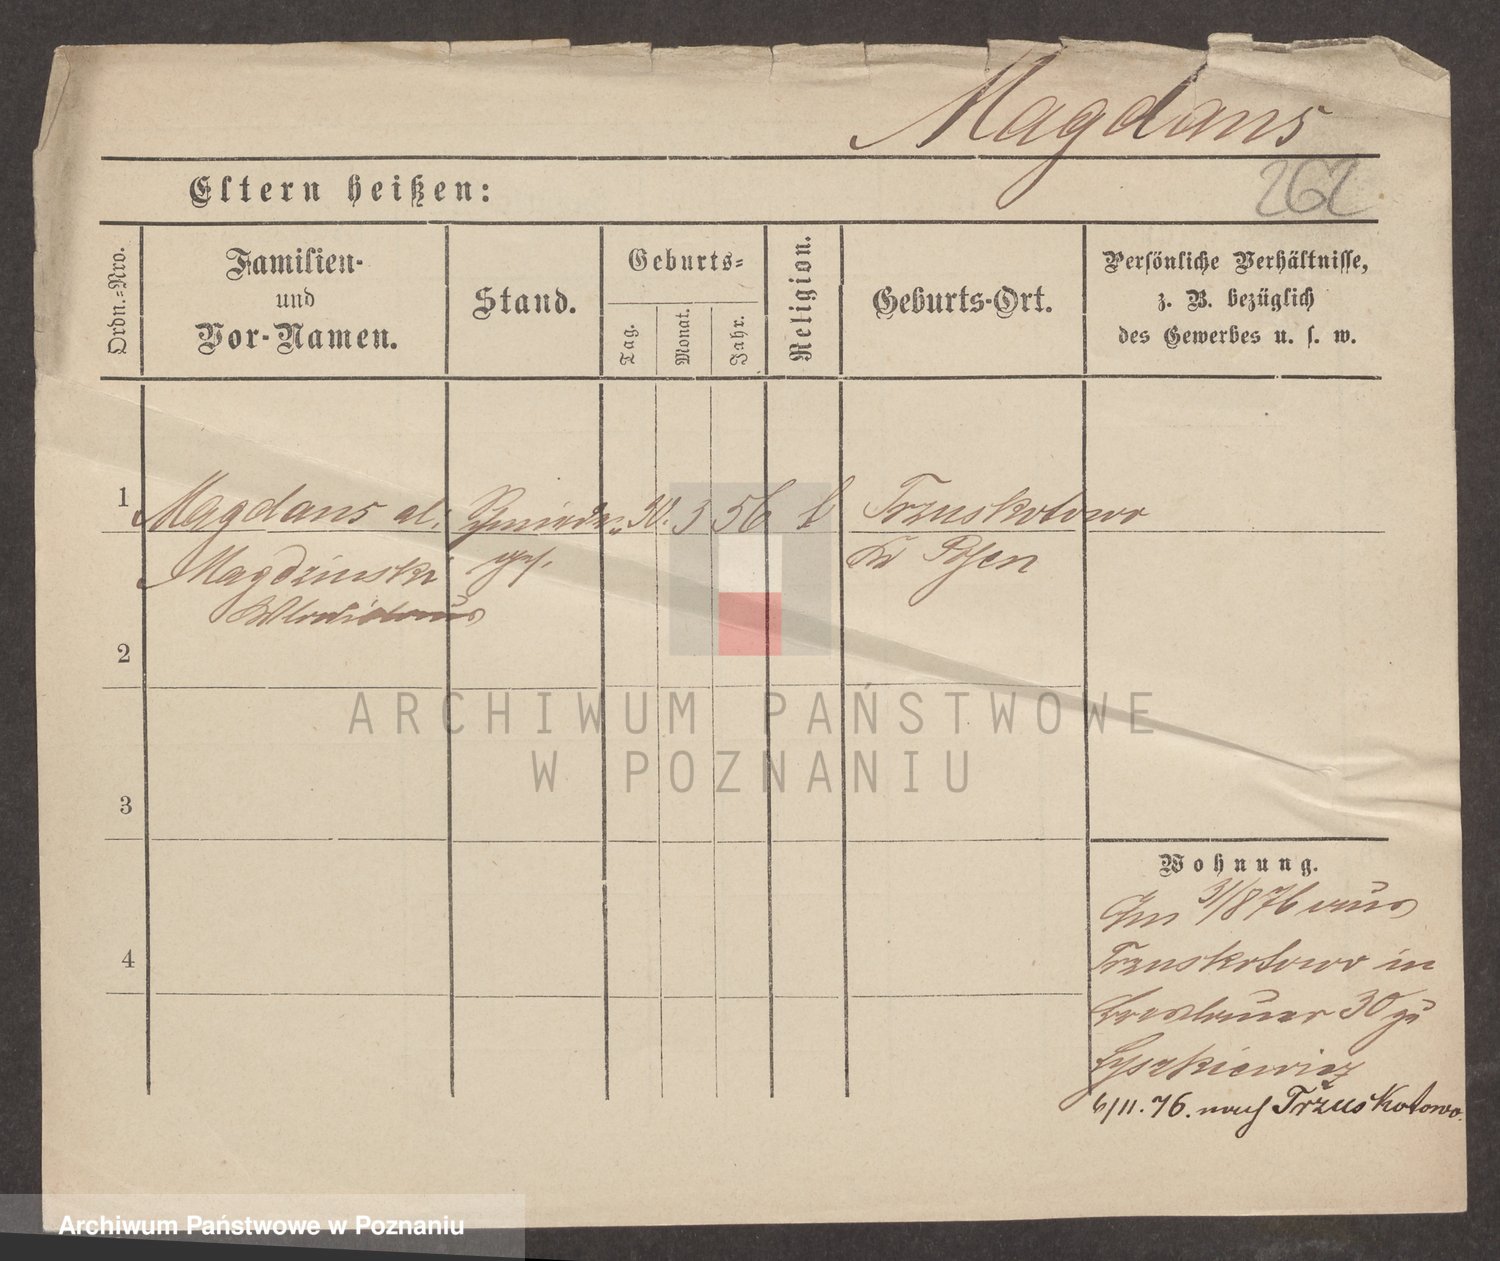 Magdans
262
Eltern heißen:
Ordn.-Nro.
Familien-
und
Vor-Namen.
Stand.
Geburts-
Tag.
Monat.
Jahr.
Religion.
Geburts-Ort.
Persönliche Verhältnisse,
z. B. bezüglich
des Gewerbes u. s. w.
1
Magdans al.
Schmiede-
30.
5
56
k
Trzuskotowo
Magdzinski
ges.
Kr Posen
Wladislaus
2
ARCHIWUM PAŃSTWOWE
W POZNANIU
3
4
Wohnung.
Am 31/8 76 aus
Trzuskotowo in
Breslauer 30 zu
Lyszkiewicz
6/11.76. nach Trzuskotowo.
Archiwum Państwowe w Poznaniu